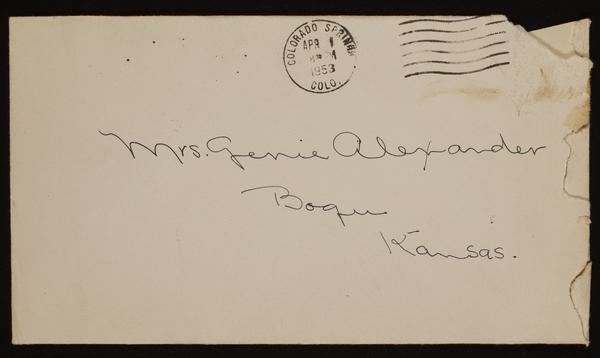 COLORADO SPRINGS
APR 1
1953
COLO.
Mrs. Genie Alexander
Bogue
Kansas.